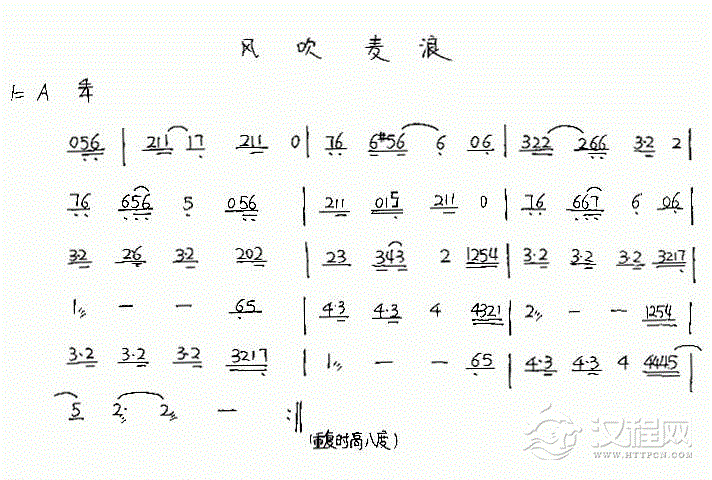 风吹麦浪
1= A 4/4
056 | 211 17 211 0 | 76 6#56 6 06 | 322 266 3·2 2 |
76 656 5 056 | 211 015 211 0 | 76 667 6 06 |
32 26 32 202 | 23 343 2 1254 | 3·2 3·2 3·2 3217 |
1 — — 65 | 4·3 4·3 4 4321 | 2 — — 1254 |
3·2 3·2 3·2 3217 | 1 — — 65 | 4·3 4·3 4 4445 |
5 2· 2 — :||
(重复时高八度)
汉程网
WWW.HTTPCN.COM